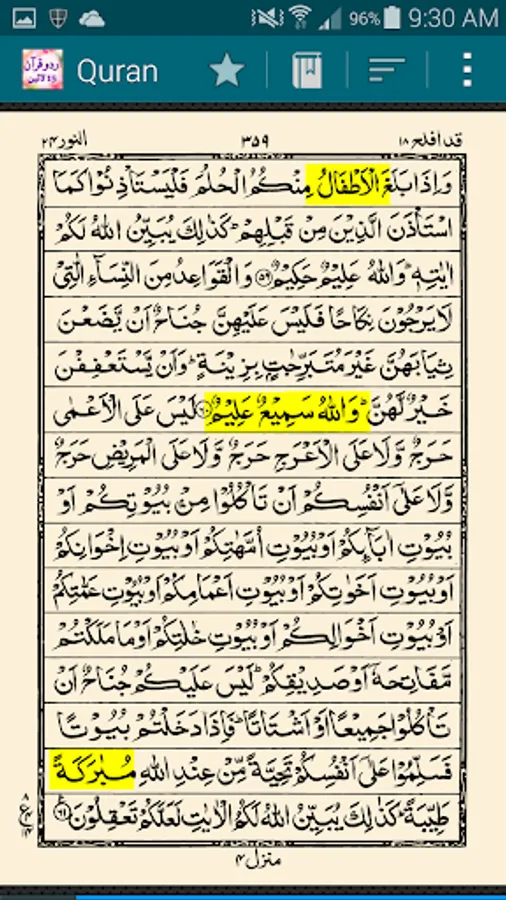 96% 9:30 AM
اردو قرآن
15 لائین
Quran
قد افلح ١٨ ٣٥٩ النور ٢٤
وَاِذَا بَلَغَ الْاَطْفَالُ مِنْكُمُ الْحُلُمَ فَلْيَسْتَاْذِنُوْا كَمَا
اسْتَاْذَنَ الَّذِيْنَ مِنْ قَبْلِهِمْ ؕ كَذٰلِكَ يُبَيِّنُ اللّٰهُ لَكُمْ
اٰيٰتِهٖ ؕ وَاللّٰهُ عَلِيْمٌ حَكِيْمٌ ۝٥٩ وَالْقَوَاعِدُ مِنَ النِّسَآءِ الّٰتِيْ
لَا يَرْجُوْنَ نِكَاحًا فَلَيْسَ عَلَيْهِنَّ جُنَاحٌ اَنْ يَّضَعْنَ
ثِيَابَهُنَّ غَيْرَ مُتَبَرِّجٰتٍ بِزِيْنَةٍ ؕ وَاَنْ يَّسْتَعْفِفْنَ
خَيْرٌ لَّهُنَّ ؕ وَاللّٰهُ سَمِيْعٌ عَلِيْمٌ ۝٦٠ لَيْسَ عَلَى الْاَعْمٰى
حَرَجٌ وَّلَا عَلَى الْاَعْرَجِ حَرَجٌ وَّلَا عَلَى الْمَرِيْضِ حَرَجٌ
وَّلَا عَلٰٓى اَنْفُسِكُمْ اَنْ تَاْكُلُوْا مِنْۢ بُيُوْتِكُمْ اَوْ
بُيُوْتِ اٰبَآئِكُمْ اَوْ بُيُوْتِ اُمَّهٰتِكُمْ اَوْ بُيُوْتِ اِخْوَانِكُمْ
اَوْ بُيُوْتِ اَخَوٰتِكُمْ اَوْ بُيُوْتِ اَعْمَامِكُمْ اَوْ بُيُوْتِ عَمّٰتِكُمْ
اَوْ بُيُوْتِ اَخْوَالِكُمْ اَوْ بُيُوْتِ خٰلٰتِكُمْ اَوْ مَا مَلَكْتُمْ
مَّفَاتِحَهٗۤ اَوْ صَدِيْقِكُمْ ؕ لَيْسَ عَلَيْكُمْ جُنَاحٌ اَنْ
تَاْكُلُوْا جَمِيْعًا اَوْ اَشْتَاتًا ؕ فَاِذَا دَخَلْتُمْ بُيُوْتًا
فَسَلِّمُوْا عَلٰٓى اَنْفُسِكُمْ تَحِيَّةً مِّنْ عِنْدِ اللّٰهِ مُبٰرَكَةً
طَيِّبَةً ؕ كَذٰلِكَ يُبَيِّنُ اللّٰهُ لَكُمُ الْاٰيٰتِ لَعَلَّكُمْ تَعْقِلُوْنَ ۝٦١
منزل ٤